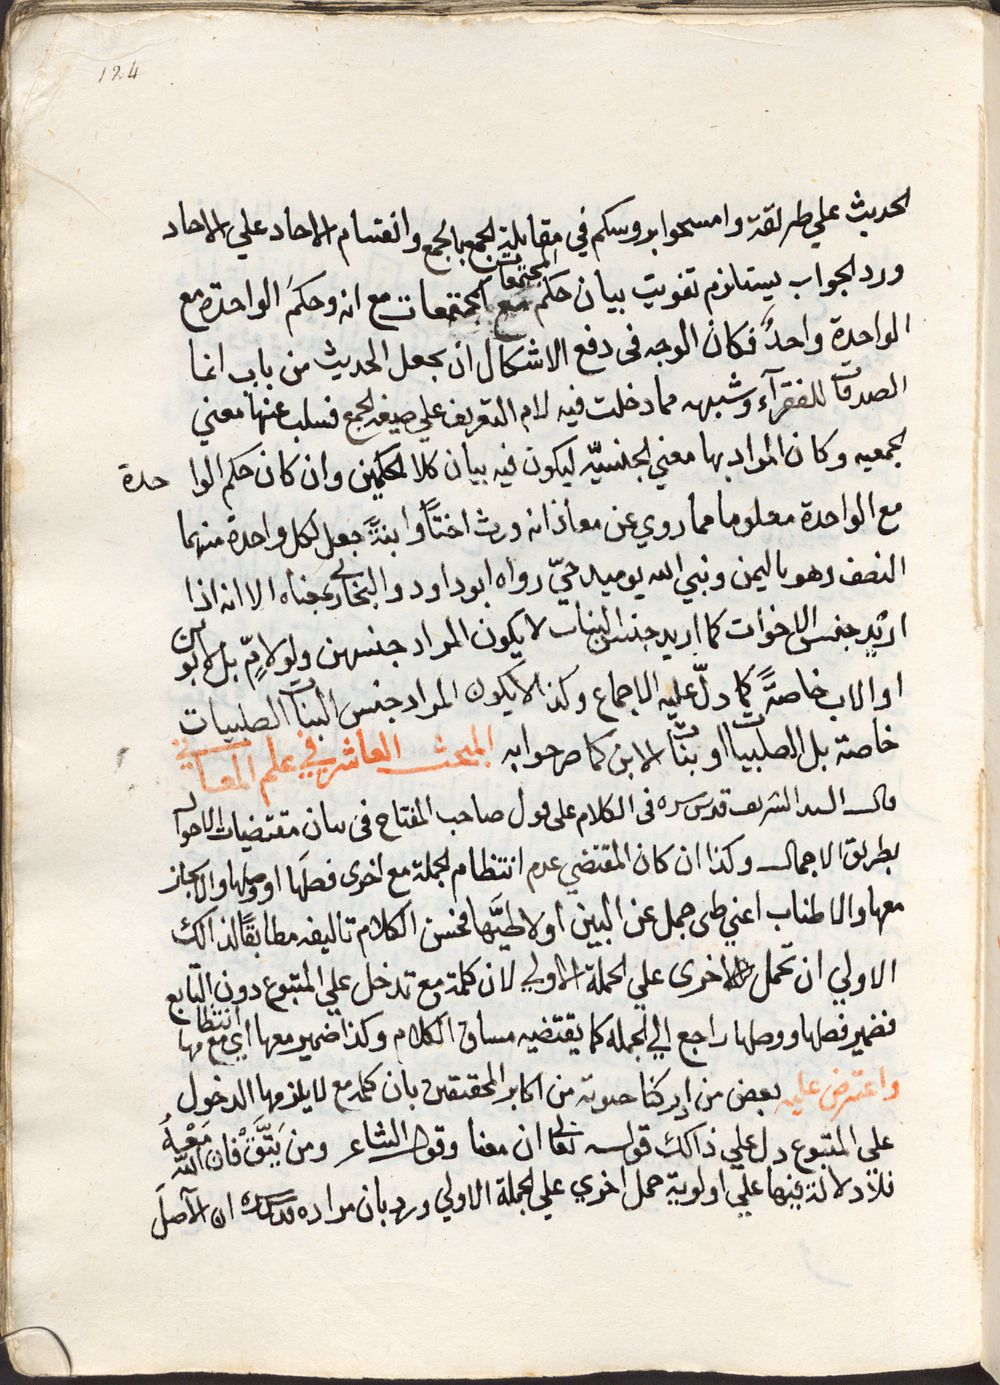 124
الحديث علي طريقة وامسحوا بروسكم في مقابلة الجمع بالجمع وانقسام الاحاد علي الاحاد
ورد الجواب يستلزم تفويت بيان حكم المجتمعات مع المجتمعات مع انه وحكم الواحدة مع
الواحدة واحدٌ فكان الوجه فى دفع الاشكال ان يجعل الحديث من باب انما
الصدقات للفقرآء وشبهه مما دخلت فيه لام التعريف علي صيغه الجمع فسلب عنها معني
الجمعيه وكان المراد بها معني الجنسيّه ليكون فيه بيان كلا الحكمين وان كان حكم الواحدة
مع الواحدة معلوما مما روي عن معاذ انه ورث اختاً وابنةً جعل لكل واحدة منهما
النصف وهو باليمن ونبي الله يوميذ حيّ رواه ابو داود والبخاري بمعناه الا انه اذا
اريد جنس الاخوات كما اريد جنس البنات لا يكون المراد جنسهن ولو لامٍّ بل لابوين
او الاب خاصةً كما دلّ عليه الاجماع وكذا لا يكون المراد جنس البنات الصلبيات
خاصة بل الصلبيات او بنات الابن كما صرحوا به المبحث العاشر في علم المعاني
قال السيد الشريف قدس سره فى الكلام على قول صاحب المفتاح فى بيان مقتضيات الاحوال
بطريق الاجمال وكذا ان كان المقتضي عدم انتظام الجملة مع اخرى فصلها او وصلها والايجاز
معها والاطناب اعني طى جمل عن البين اولا طيَّها فحسن الكلام تاليفه مطابقًا لذالك
الاولي ان تحمل الاخرى علي الجملة الاولي لان كلمة مع تدخل علي المتبوع دون التابع
فضمير فصلها ووصلها راجع الي الجمله كما يقتضيه مساق الكلام وكذا ضمير معها اي مع انتظامها
واعترض عليه بعض من ادركنا صحبته من اكابر المحققين بان كلمه مع لا يلزمها الدخول
على المتبوع دل علي ذالك قوله تعالى ان معنا وقول الشاعر ومن يَتَّقْ فان الله مَعْهُ
فلا دلالة فيها علي اولوية حمل اخري علي الجملة الاولي ورد بان مراده ان الاصل